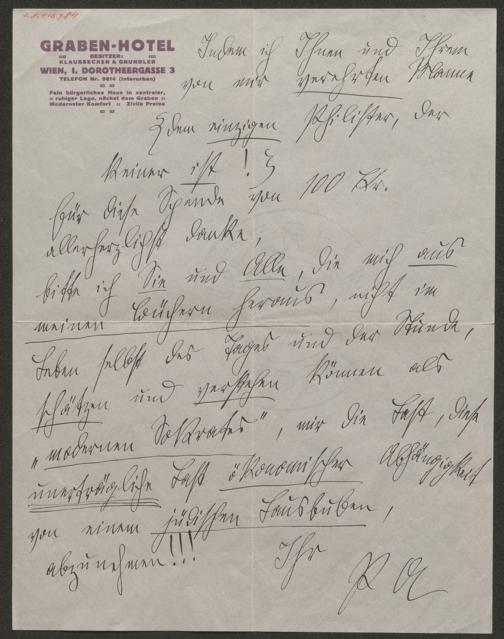 I.N. 115.784
GRABEN-HOTEL
BESITZER:
KLAUSSECKER & GRUNDLER
WIEN, I. DOROTHEERGASSE 3
TELEFON Nr. 9814 (interurban)
Fein bürgerliches Haus in zentraler,
ruhiger Lage, nächst dem Graben
Modernster Komfort :: Zivile Preise
Indem ich Ihnen und Ihrem
von mir verehrten Manne
(dem einzigen Philister, der
keiner ist!)
für diese Spende von 100 Kr.
allerherzlichst danke,
bitte ich Sie und Alle, die mich aus
meinen Büchern heraus, nicht im
Leben selbst des Tages und der Stunde,
schätzen und verstehen können als
„modernen Sokrates", mir die Last, diese
unerträgliche Last ökonomischer Abhängigkeit
von einem jüdischen Lausbuben,
abzunehmen!!!
Ihr
PA